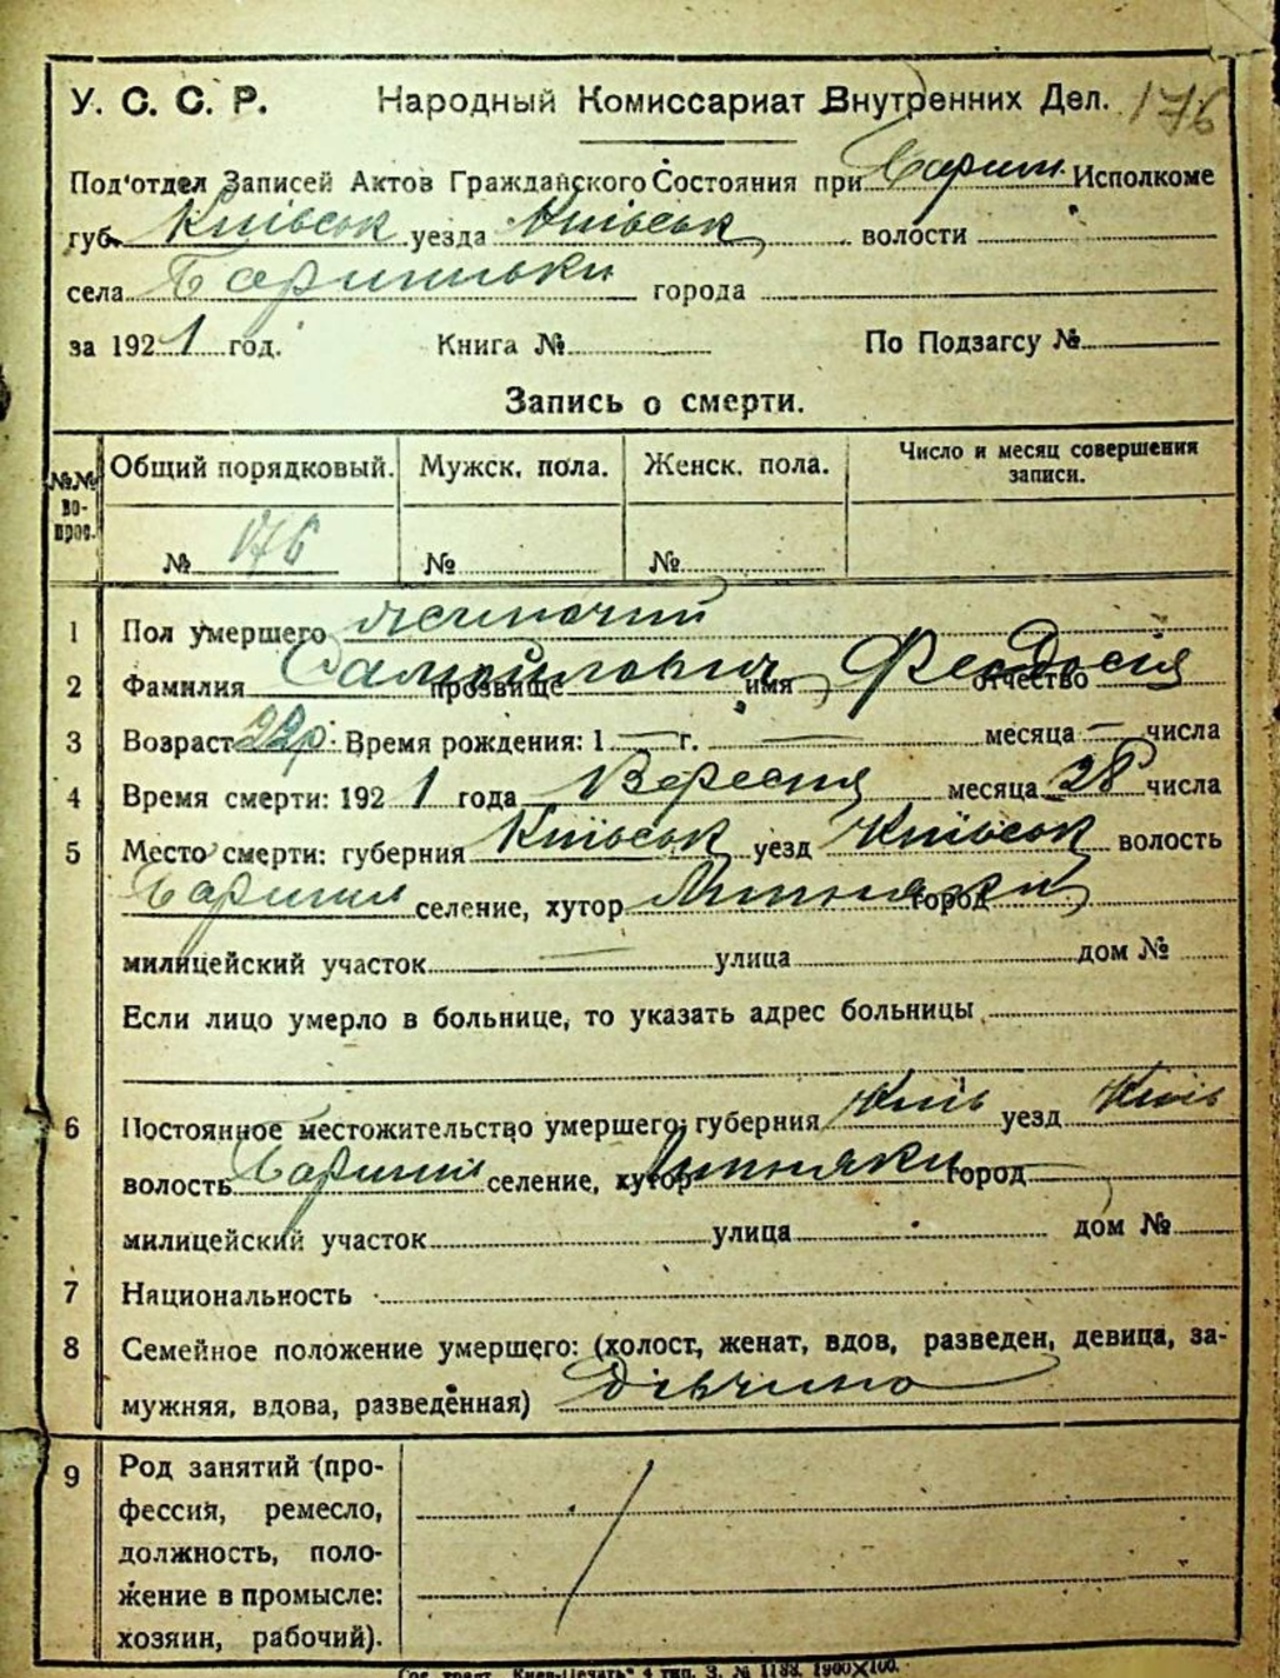 У. С. С. Р. Народный Комиссариат Внутренних Дел. 176
Под'отдел Записей Актов Гражданского Состояния при Бариш. Исполкоме
губ. Київськ уезда Київськ волости
села Баришівки города
за 1921 год. Книга № По Подзагсу №
Запись о смерти.
№№ вопрос. Общий порядковый. Мужск. пола. Женск. пола. Число и месяц совершения записи.
№ 176 № №
1 Пол умершего жіночий
2 Фамилия Самойлович прозвище имя Феодосія отчество
3 Возраст 22р. Время рождения: 1 — г. — месяца — числа
4 Время смерти: 1921 года Вересня месяца 28 числа
5 Место смерти: губерния Київськ уезд Київськ волость
Бариш селение, хутор Липняки город
милицейский участок — улица дом №
Если лицо умерло в больнице, то указать адрес больницы
6 Постоянное местожительство умершего: губерния Київ уезд Київ
волость Бариш селение, хутор Липняки город
милицейский участок улица дом №
7 Национальность
8 Семейное положение умершего: (холост, женат, вдов, разведен, девица, за-
мужняя, вдова, разведённая) дівчина
9 Род занятий (про-
фессия, ремесло,
должность, поло-
жение в промысле:
хозяин, рабочий).
Гос. трест „Киев-Печать" 4 тип. З. № 1188. 1900×100.